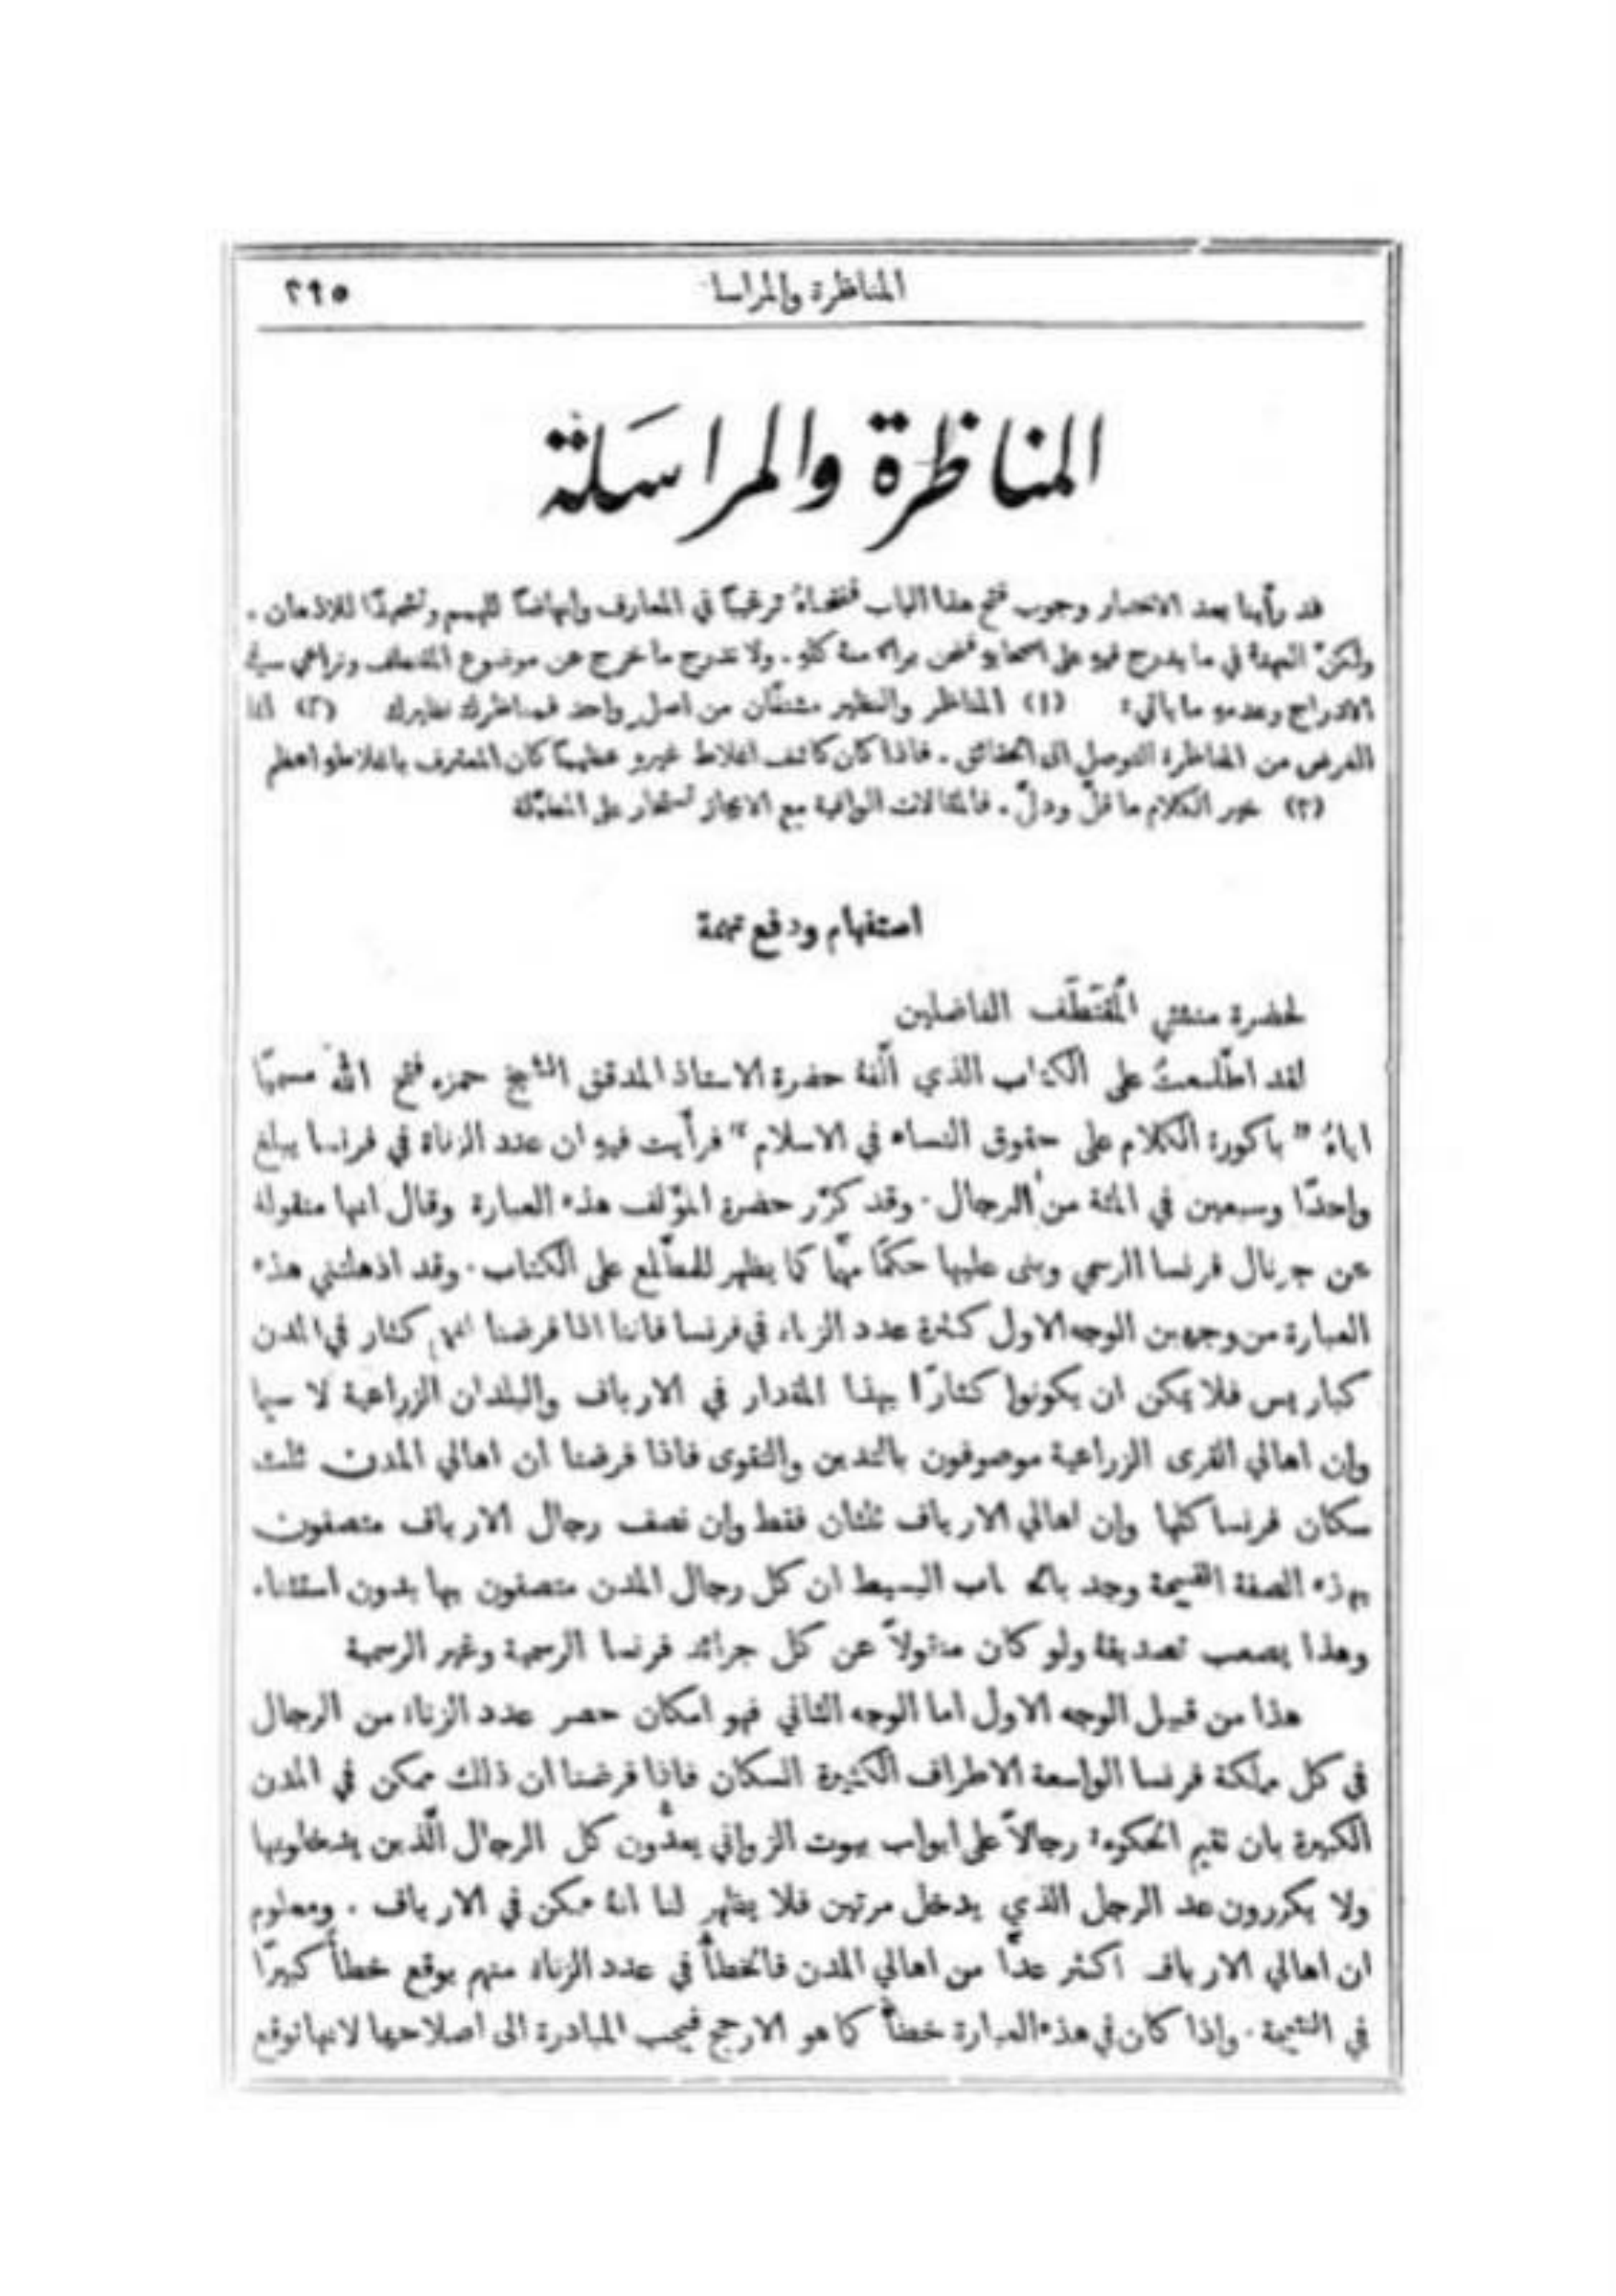 المناظرة والمراسا
٢٩٥
المناظرة والمراسَلة
قد رأينا بعد الاختبار وجوب فتح هذا الباب ففتحناهُ ترغيبًا في المعارف وإنهاضًا للهمم وتشحيذًا للاذهان .
ولكنّ العهدة في ما يدرج فيهِ على اصحابهِ فنحن برالا منهُ كلهِ . ولا ندرج ما خرج عن موضوع المقتطف ونراعي في
الادراج وعدمهِ ما ياتي : (١) المناظر والنظير مشتقّان من اصل واحد فمناظرك نظيرك (٢) انما
الغرض من المناظرة التوصل الى الحقائق . فاذا كان كاشف اغلاط غيرهِ عظيمًا كان المعترف باغلاطهِ اعظم
(٣) خير الكلام ما قلّ ودلّ . فالمقالات الوافية مع الايجاز تستخار على المطوّلة
استفهام ودفع تهمة
لحضرة منشئي المُقتَطَف الفاضلين
لقد اطّلعتُ على الكتاب الذي ألّفهُ حضرة الاستاذ المدقق الشيخ حمزه فتح الله مسميًا
اياهُ " باكورة الكلام على حقوق النساء في الاسلام " فرأيت فيهِ ان عدد الزناة في فرنسا يبلغ
واحدًا وسبعين في المئة من الرجال . وقد كرّر حضرة المؤلف هذه العبارة وقال انها منقولة
عن جرنال فرنسا الرسمي وبنى عليها حكمًا مهمًّا كما يظهر للمطّلع على الكتاب . وقد اذهلتني هذه
العبارة من وجهين الوجه الاول كثرة عدد الزناة في فرنسا فاننا اذا فرضنا انهم كثار في المدن
كباريس فلا يمكن ان يكونوا كثارًا بهذا المقدار في الارياف والبلدان الزراعية لا سيما
وان اهالي القرى الزراعية موصوفون بالتدين والتقوى فاذا فرضنا ان اهالي المدن ثلث
سكان فرنسا كلها وان اهالي الارياف ثلثان فقط وان نصف رجال الارياف متصفون
بهذه الصفة القبيحة وجد بالحساب البسيط ان كل رجال المدن متصفون بها بدون استثناء
وهذا يصعب تصديقهُ ولو كان منقولاً عن كل جرائد فرنسا الرسمية وغير الرسمية
هذا من قبيل الوجه الاول اما الوجه الثاني فهو امكان حصر عدد الزناة من الرجال
في كل مملكة فرنسا الواسعة الاطراف الكثيرة السكان فاذا فرضنا ان ذلك ممكن في المدن
الكبيرة بان تقيم الحكومة رجالاً على ابواب بيوت الزواني يعدُّون كل الرجال الَّذين يدخلونها
ولا يكررون عد الرجل الذي يدخل مرتين فلا يظهر لنا انهُ ممكن في الارياف . ومعلوم
ان اهالي الارياف اكثر عدًّا من اهالي المدن فالخطأُ في عدد الزناة منهم يوقع خطأً كبيرًا
في النتيجة . واذا كان في هذه العبارة خطأٌ كما هو الارجح فيجب المبادرة الى اصلاحها لانها توقع